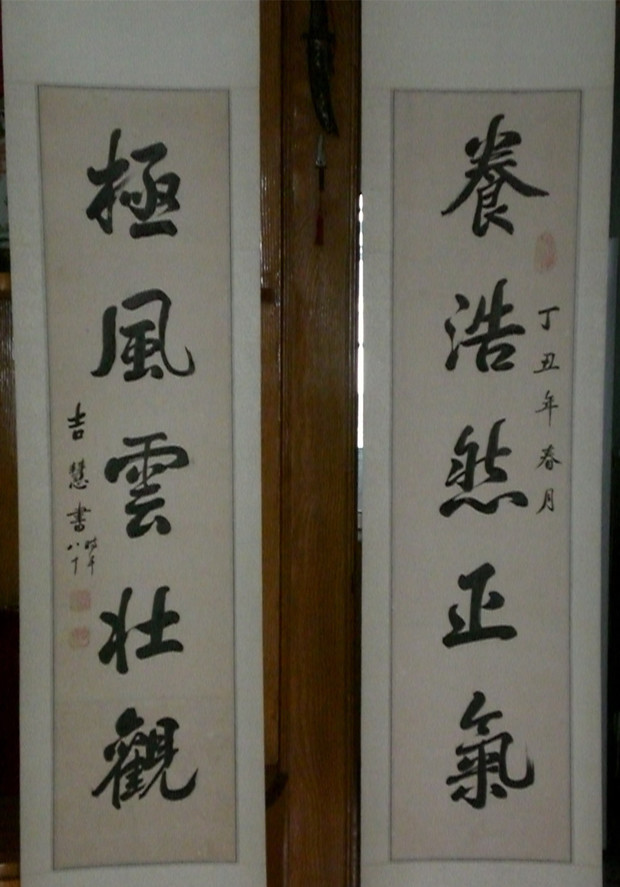 養浩然正氣
丁丑年春月
極風雲壯觀
吉慧書
時年
八十